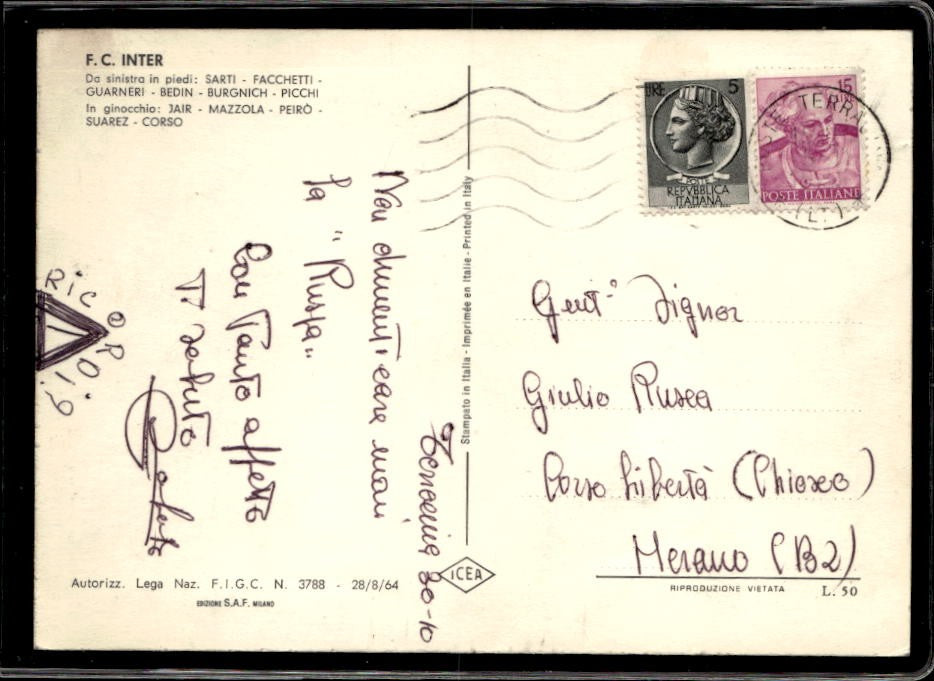 F. C. INTER
Da sinistra in piedi: SARTI - FACCHETTI -
GUARNERI - BEDIN - BURGNICH - PICCHI
In ginocchio: JAIR - MAZZOLA - PEIRÒ -
SUAREZ - CORSO
LIRE 5
POSTE
REPVBBLICA
ITALIANA
15
LIRE
POSTE ITALIANE
TERRACINA
(LT)
Stampato in Italia - Imprimée en Italie - Printed in Italy
30-10
Non dimenticare mai
la "Ruspa"
Con Tanto affetto
Ti saluto
Roberto
RiCORDiO.
Gent° Signor
Giulio Rusca
Corso Libertà (Chiosco)
Merano (BZ)
ICEA
Autorizz. Lega Naz. F.I.G.C. N. 3788 - 28/8/64
EDIZIONE S.A.F. MILANO
RIPRODUZIONE VIETATA
L. 50